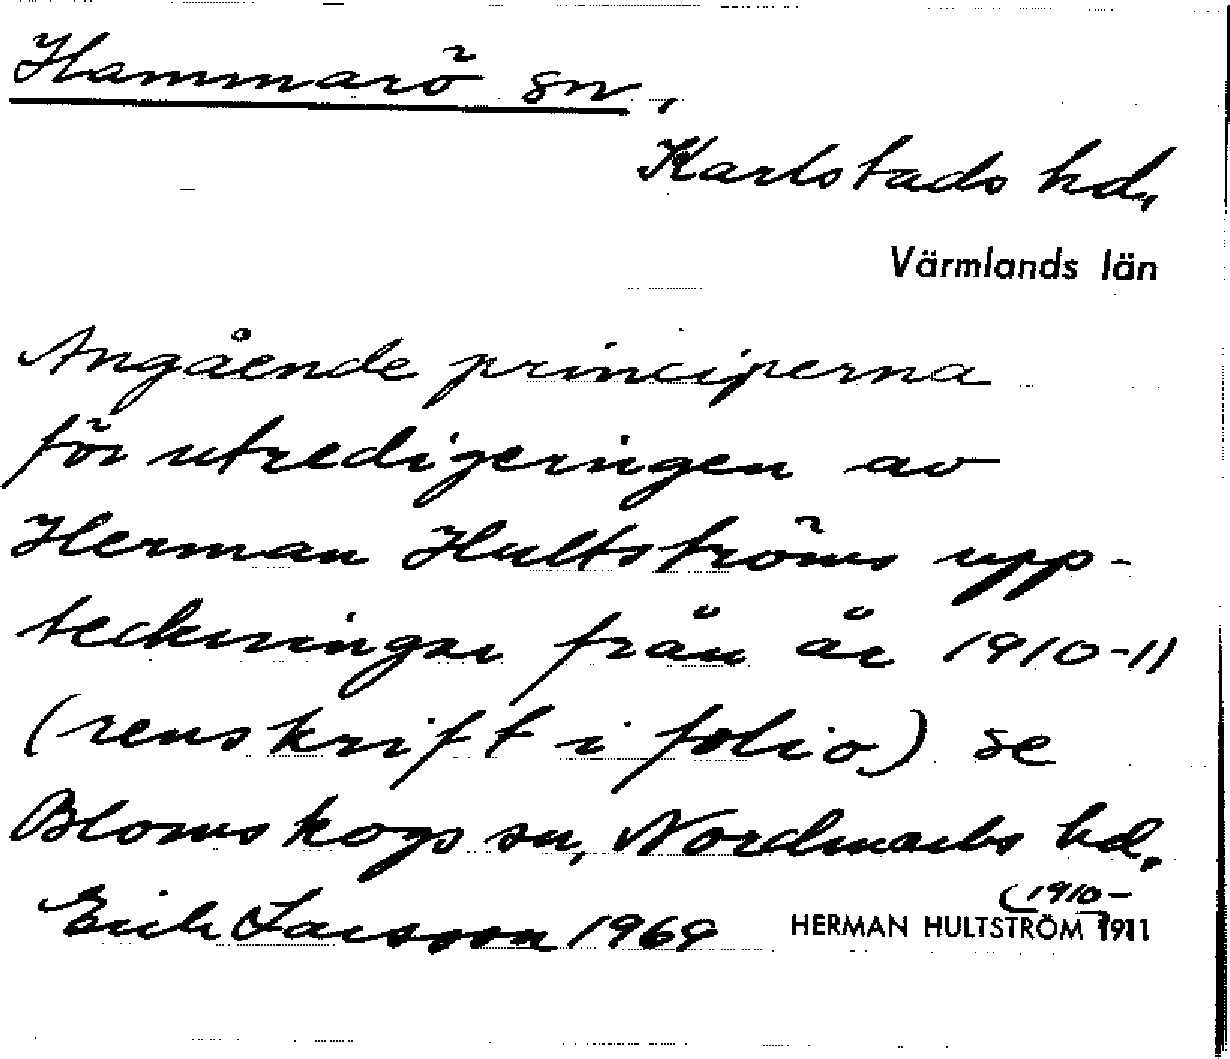 Hammarö sn,
Karlstads hd,
Värmlands län
Angående principerna
för utredigeringen av
Herman Hultströms upp-
teckningar från år 1910-11
(renskrift i folio) se
Blomskogs sn, Nordmarks hd.
(1910-
Erik Larsson 1969 HERMAN HULTSTRÖM 1911